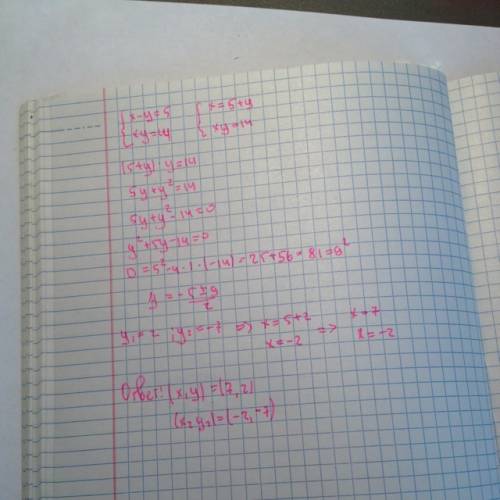 {x-y=5 {x=5+y
{xy=14 {xy=14
(5+y)·y=14
5y+y²=14
5y+y²-14=0
y²+5y-14=0
D=5²-4·1·(-14)=25+56=81=9²
y=-5±9/2
y₁=2 ; y₂=-7 => x=5+2 => x=7
x=-2 x=-2
Ответ: (x,y)=(7,2)
(x₂y₂)=(-2,-7)